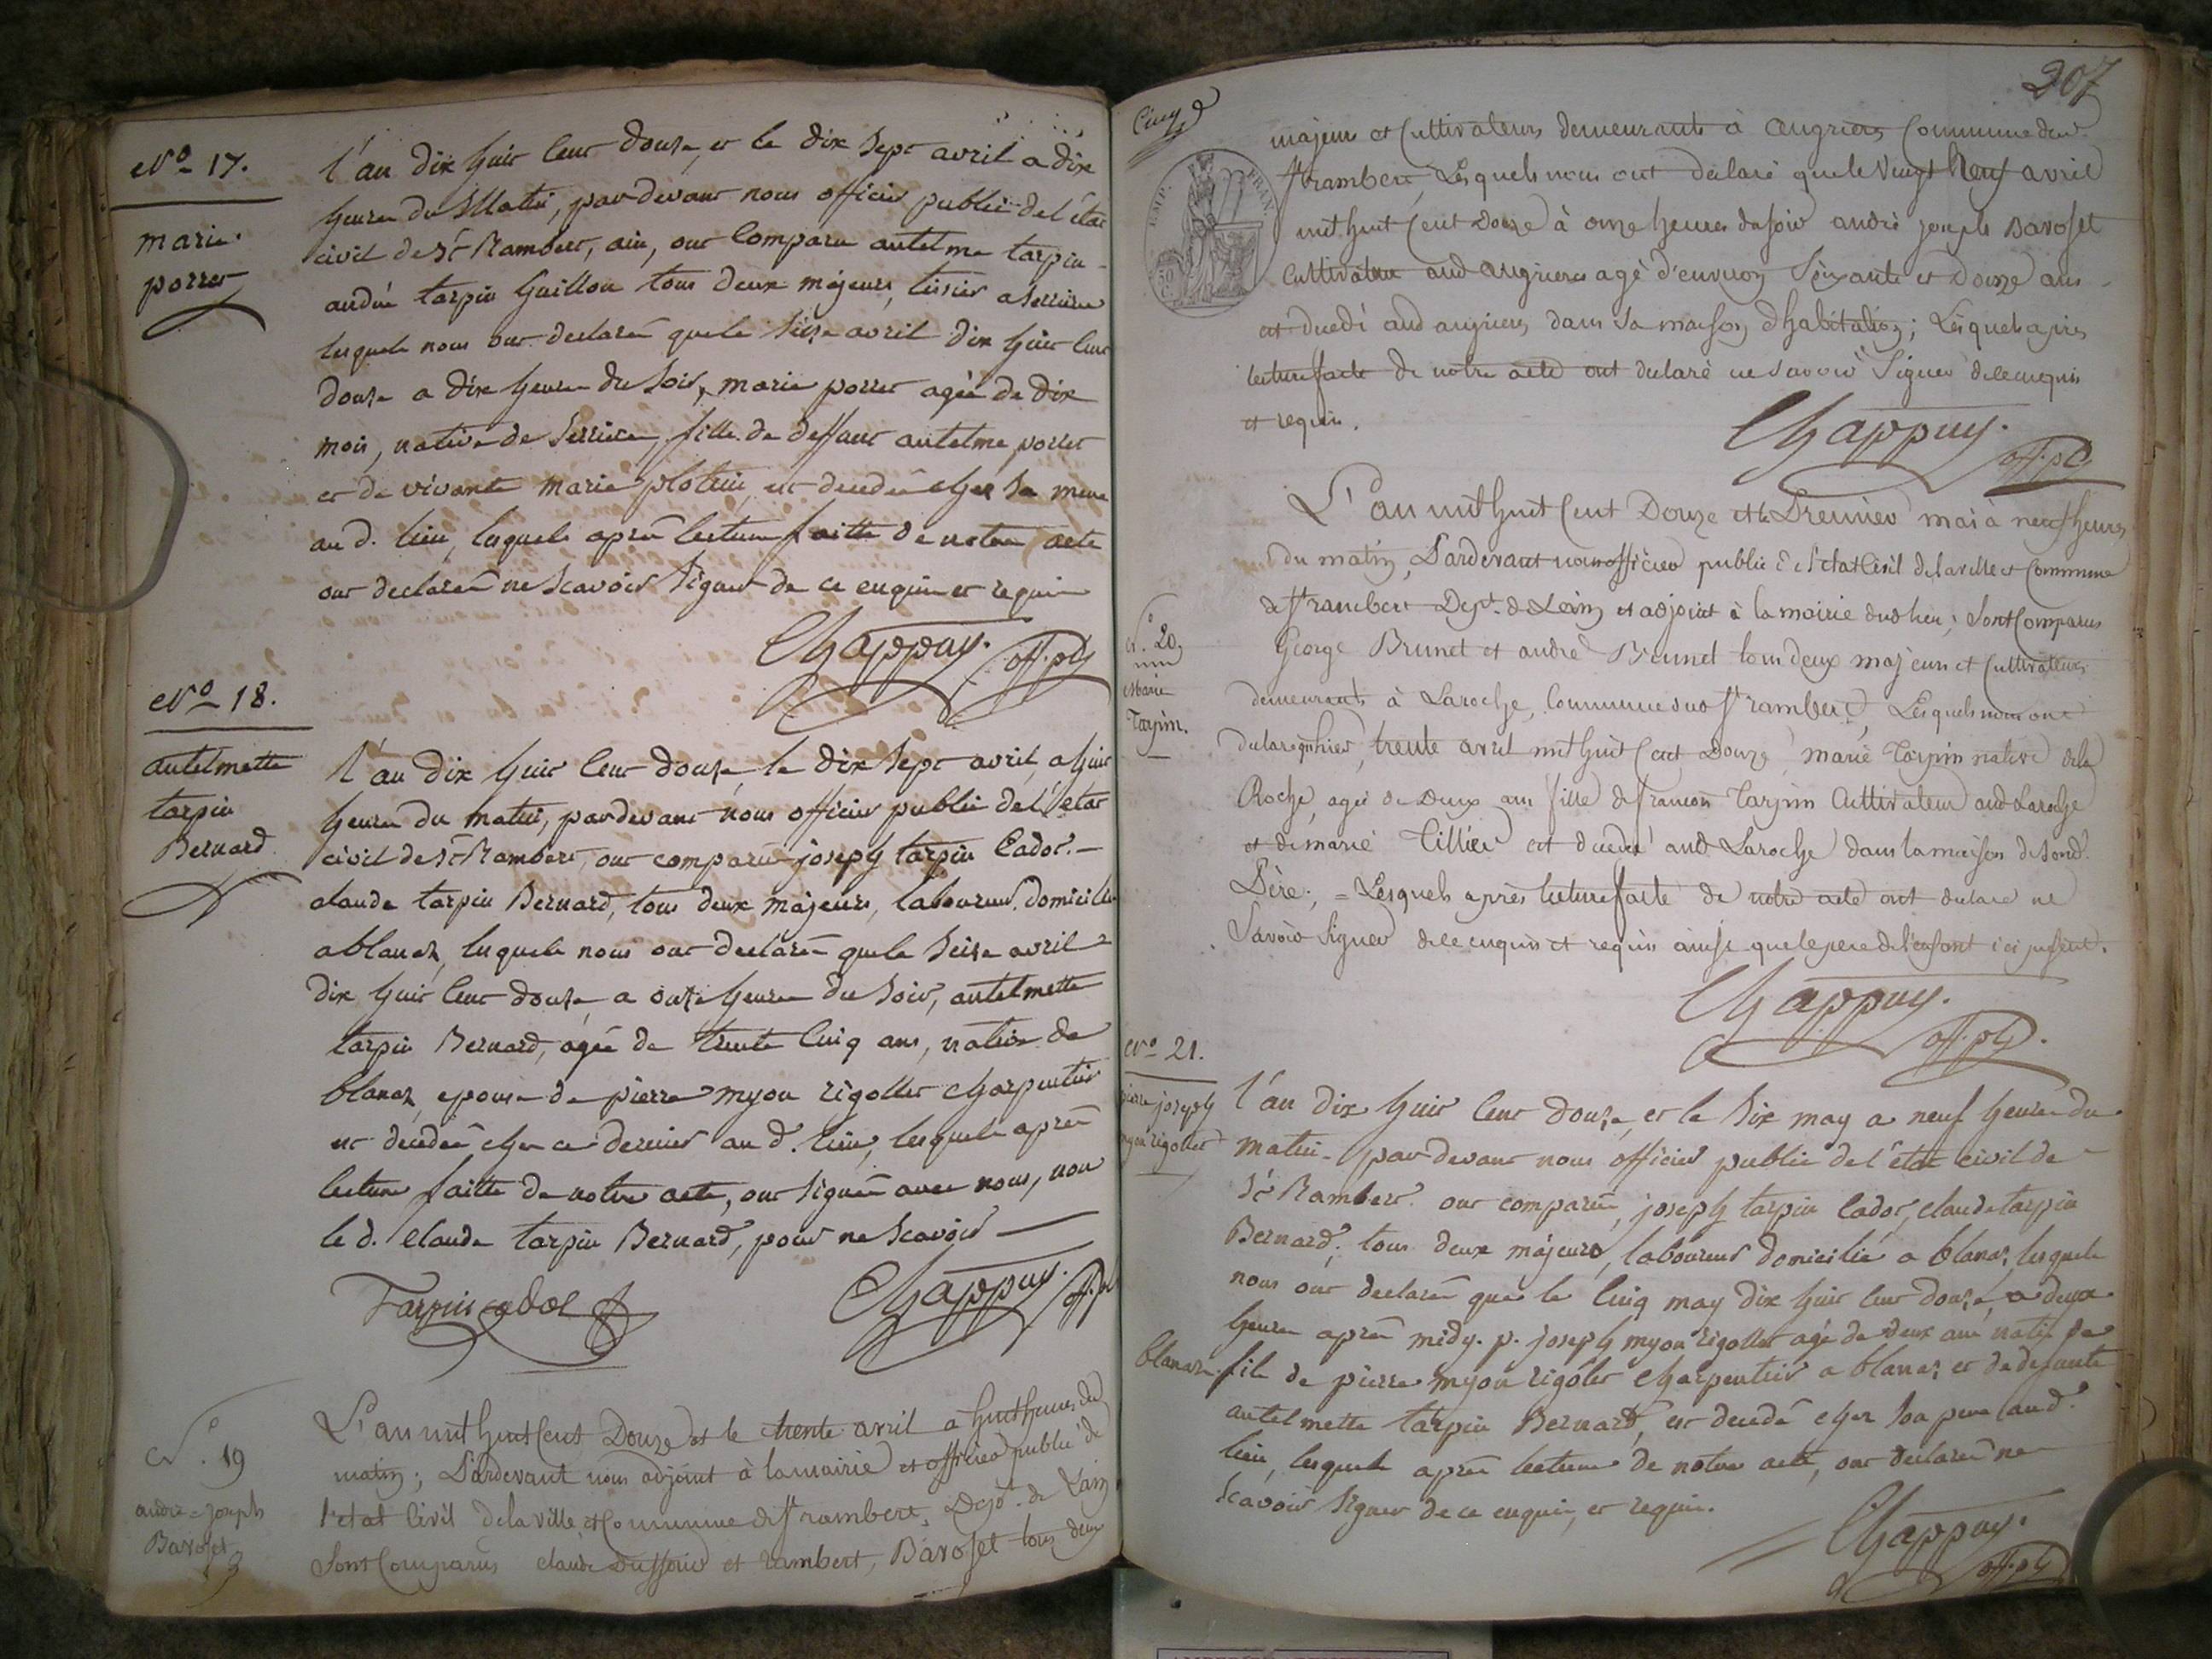 No 17.
marie
porret
l'an dix huit cent douze, et le dix sept avril a dix
heures du Matin, pardevant nous officier public de l'état
civil de St Rambert, ain, ont comparu antelme tarpin
andré tarpin Guillon tous deux majeurs, tissier a Serriere
lesquels nous ont declaré que le seize avril dix huit cent
douze a dix heures du soir, marie porret agée de dix
mois, native de Serriere, fille de deffunt antelme porret
et de vivante marie plotin est decedée chez sa mere
au d. lieu, lesquels après lecture faitte de notre acte
ont declaré ne scavoir signer de ce enquis et requis
Chappuy. off. pb
No 18.
antelmette
tarpin
Bernard
l'an dix huit cent douze, le dix sept avril, a huit
heures du matin, pardevant nous officier public de l'état
civil de St Rambert, ont comparu joseph tarpin Cadot.
claude tarpin Bernard, tous deux majeurs, laboureurs domiciliés
a blanaz, lesquels nous ont declaré que le seize avril
dix huit cent douze, a onze heures du soir, antelmette
tarpin Bernard, agée de trente cinq ans, native de
blanaz, epouse de pierre myon rigollet charpentier
est decedée chez ce dernier au d. lieu, lesquels après
lecture faitte de notre acte, ont signé avec nous, non
le d. Claude tarpin Bernard, pour ne scavoir
Tarpin cadot Chappuy. off. pb
N° 19
andré = joseph
Baroset
L'an mil huit Cent Douze et le trente avril à huit heures du
matin; Pardevant nous adjoint à la mairie et officier public de
l'etat Civil de la ville et Commune de St rambert, Depot. de L'ain
Sont Comparus claude Dussouir et rambert, Baroset tous deux
Cinq
307
EMP. FRAN.
majeurs et Cultivateurs demeurants à angrieres Commune dud.
St rambert, Lesquels nous ont declaré que le Vingt Neuf avril
mil huit Cent Douze à onze heures du soir andré joseph Baroset
Cultivateur aud. angrieres agé d'environ Soixante et Douze ans
est décédé aud angrieres dans sa maison d'habitation; Lesquels après
lecture faite de notre acte ont declaré ne savoir Signer de ce enquis
et requis.
Chappuy. off. pb
N° 20.
Marie
Tarpin.
L'an mil huit Cent Douze et le Premier mai à neuf heures
du matin, Pardevant nous officier public de l'etat Civil de la ville et Commune
de St rambert Dept. de L'ain et adjoint à la mairie dud lieu; Sont Comparus
George Brunet et andré Brunet tous deux majeurs et Cultivateurs
demeurants à Laroche, Commune dud St rambert, Lesquels nous ont
declaré qu'hier, trente avril mil huit Cent Douze, marie Tarpin native de la
Roche, agée de Deux ans fille de francois Tarpin Cultivateur aud Laroche
et de marie Tillier est decedée aud. Laroche dans la maison de sond.
Père; = Lesquels après lecture faite de notre acte ont declaré ne
Savoir Signer de ce enquis et requis ainsi que le pere de l'enfant ici present.
Chappuy.
off. pb.
No 21.
pierre joseph
myon rigollet
l'an dix huit cent douze, et le six may a neuf heures du
matin, pardevant nous officier public de l'état civil de
St Rambert. ont comparu, joseph tarpin Cadot, claude tarpin
Bernard, tous deux majeurs, laboureurs domicilié a blanaz, lesquels
nous ont declaré que le cinq may dix huit cent douze, a deux
heures après midy. p. joseph myon rigollet agé de deux ans natif de
blanaz. fils de pierre myon rigollet charpentier a blanaz et de defunte
antelmette tarpin Bernard, est decedé chez son pere au d.
lieu, lesquels après lecture de notre acte, ont declaré ne
scavoir signer de ce enquis, et requis.
Chappuy.
off. pb